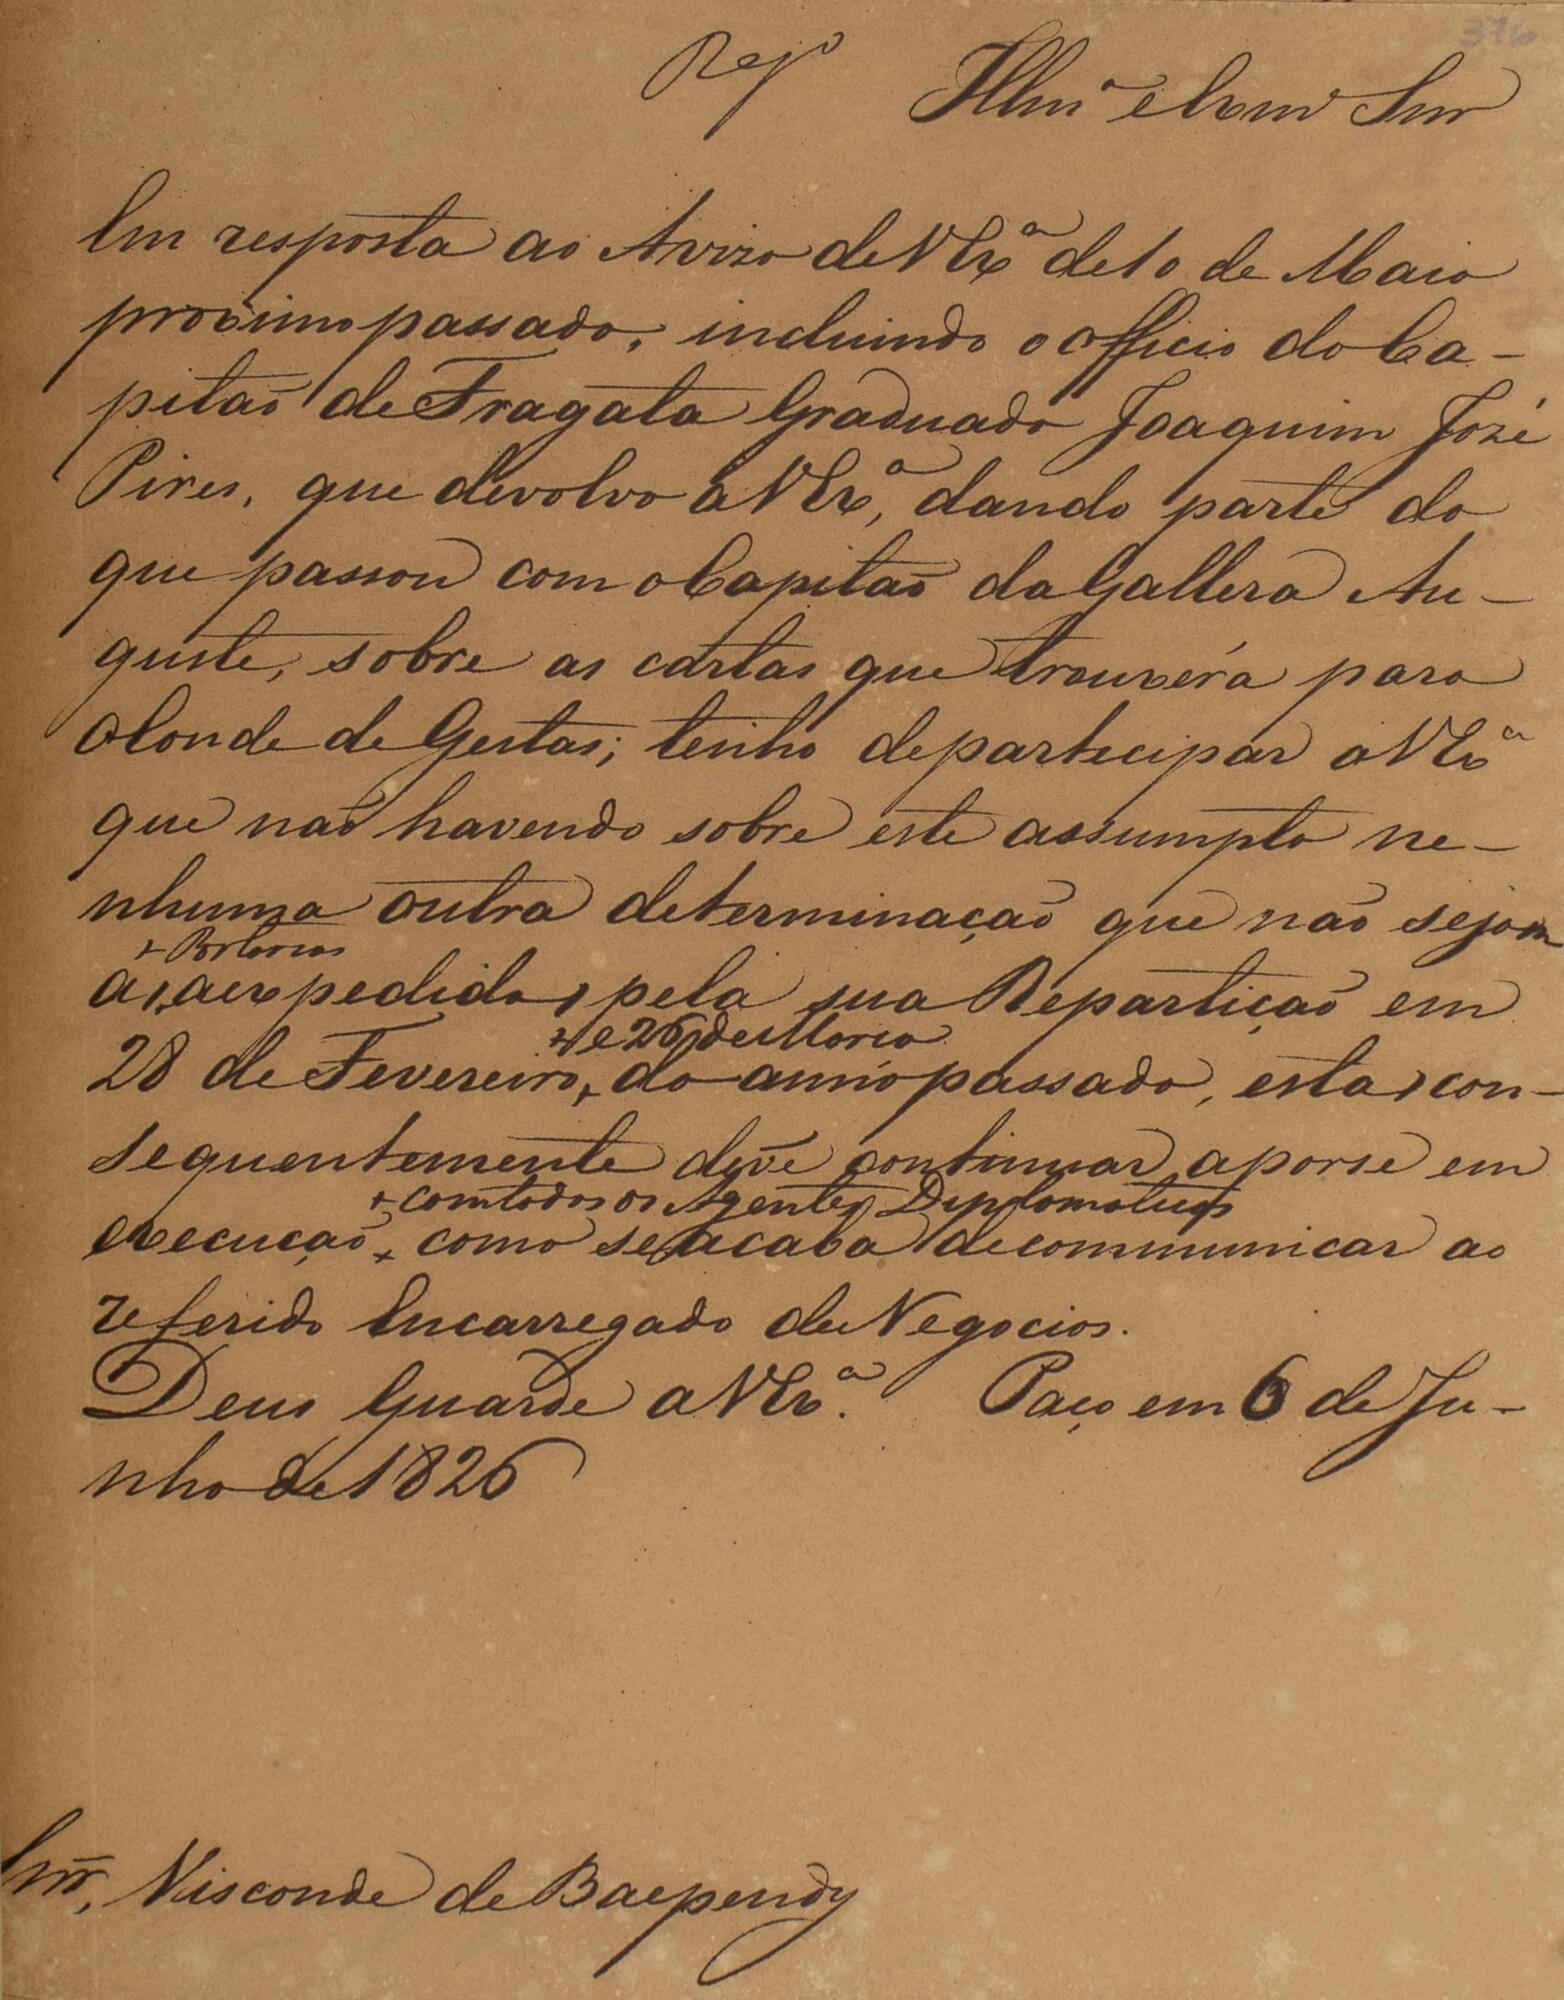 376
Reg.º
Illmº e Exmº Snr
Em resposta ao Avizo de V Exª de 10 de Maio
proximo passado, incluindo o officio do Ca-
pitaõ de Fragata Graduado Joaquim Jozé
Pires, que devolvo a V Exª, dando parte do
que passou com o Capitaõ da Gallera Au-
guste, sobre as cartas que trouxéra para
o Conde de Gestas; tenho de partecipar a V Exª
que naõ havendo sobre este assumpto ne-
nhuma outra determinaçaõ que não sejam
+ Portarias
as, a expedidas pela sua Repartiçaõ em
+ e 26 de Março
28 de Fevereiro, + do anno passado, estas con-
sequentemente deve continuar a porse em
+ com todos os Agentes Diplomaticos
execuçaõ + como se acaba de communicar ao
referido Encarregado de Negocios.
Deus Guarde a V Exª. Paço em 6 de Ju-
nho de 1826
Snr̃. Visconde de Baependy